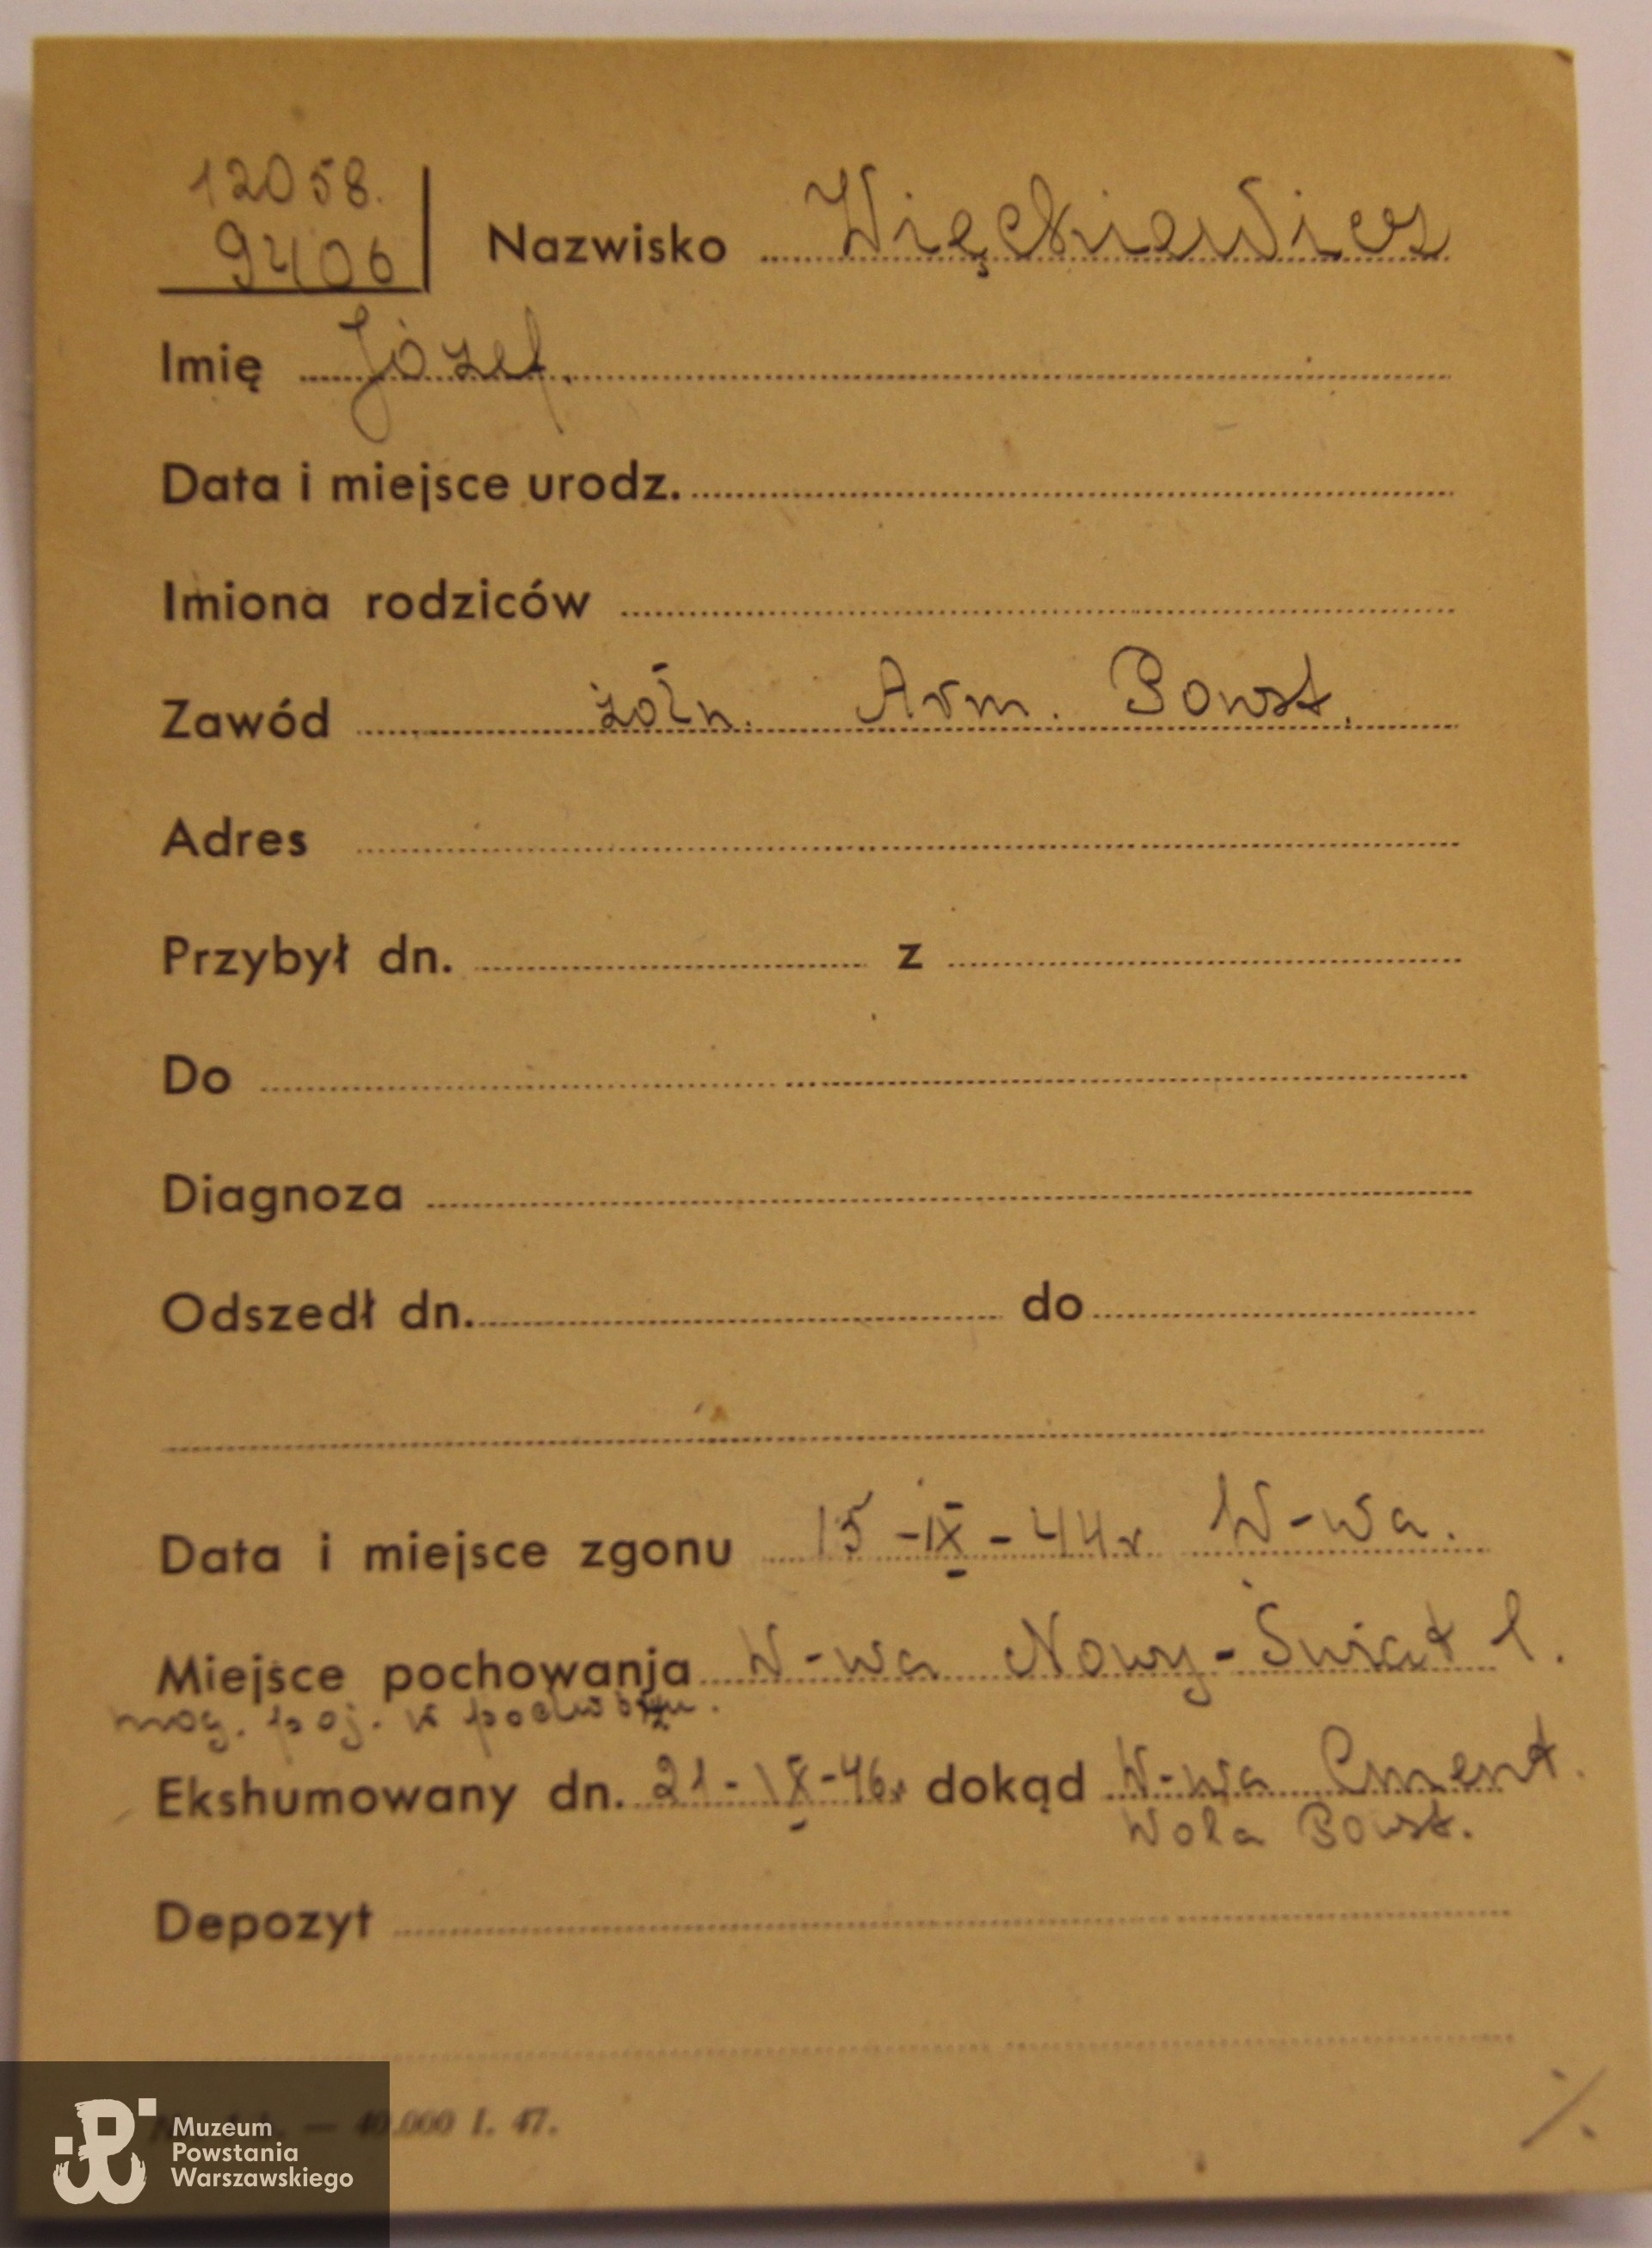 12058.
9406
Nazwisko Więckiewicz
Imię Józef.
Data i miejsce urodz.
Imiona rodziców
Zawód żołn. Arm. Powst.
Adres
Przybył dn. z
Do
Diagnoza
Odszedł dn. do
Data i miejsce zgonu 15-IX-44r W-wa.
Miejsce pochowania W-wa Nowy-Świat 1.
mog. poj. w podwórzu.
Ekshumowany dn. 21-IX-46r dokąd W-wa Cment.
Wola Powst.
Depozyt
— 40.000 I. 47.
Muzeum
Powstania
Warszawskiego